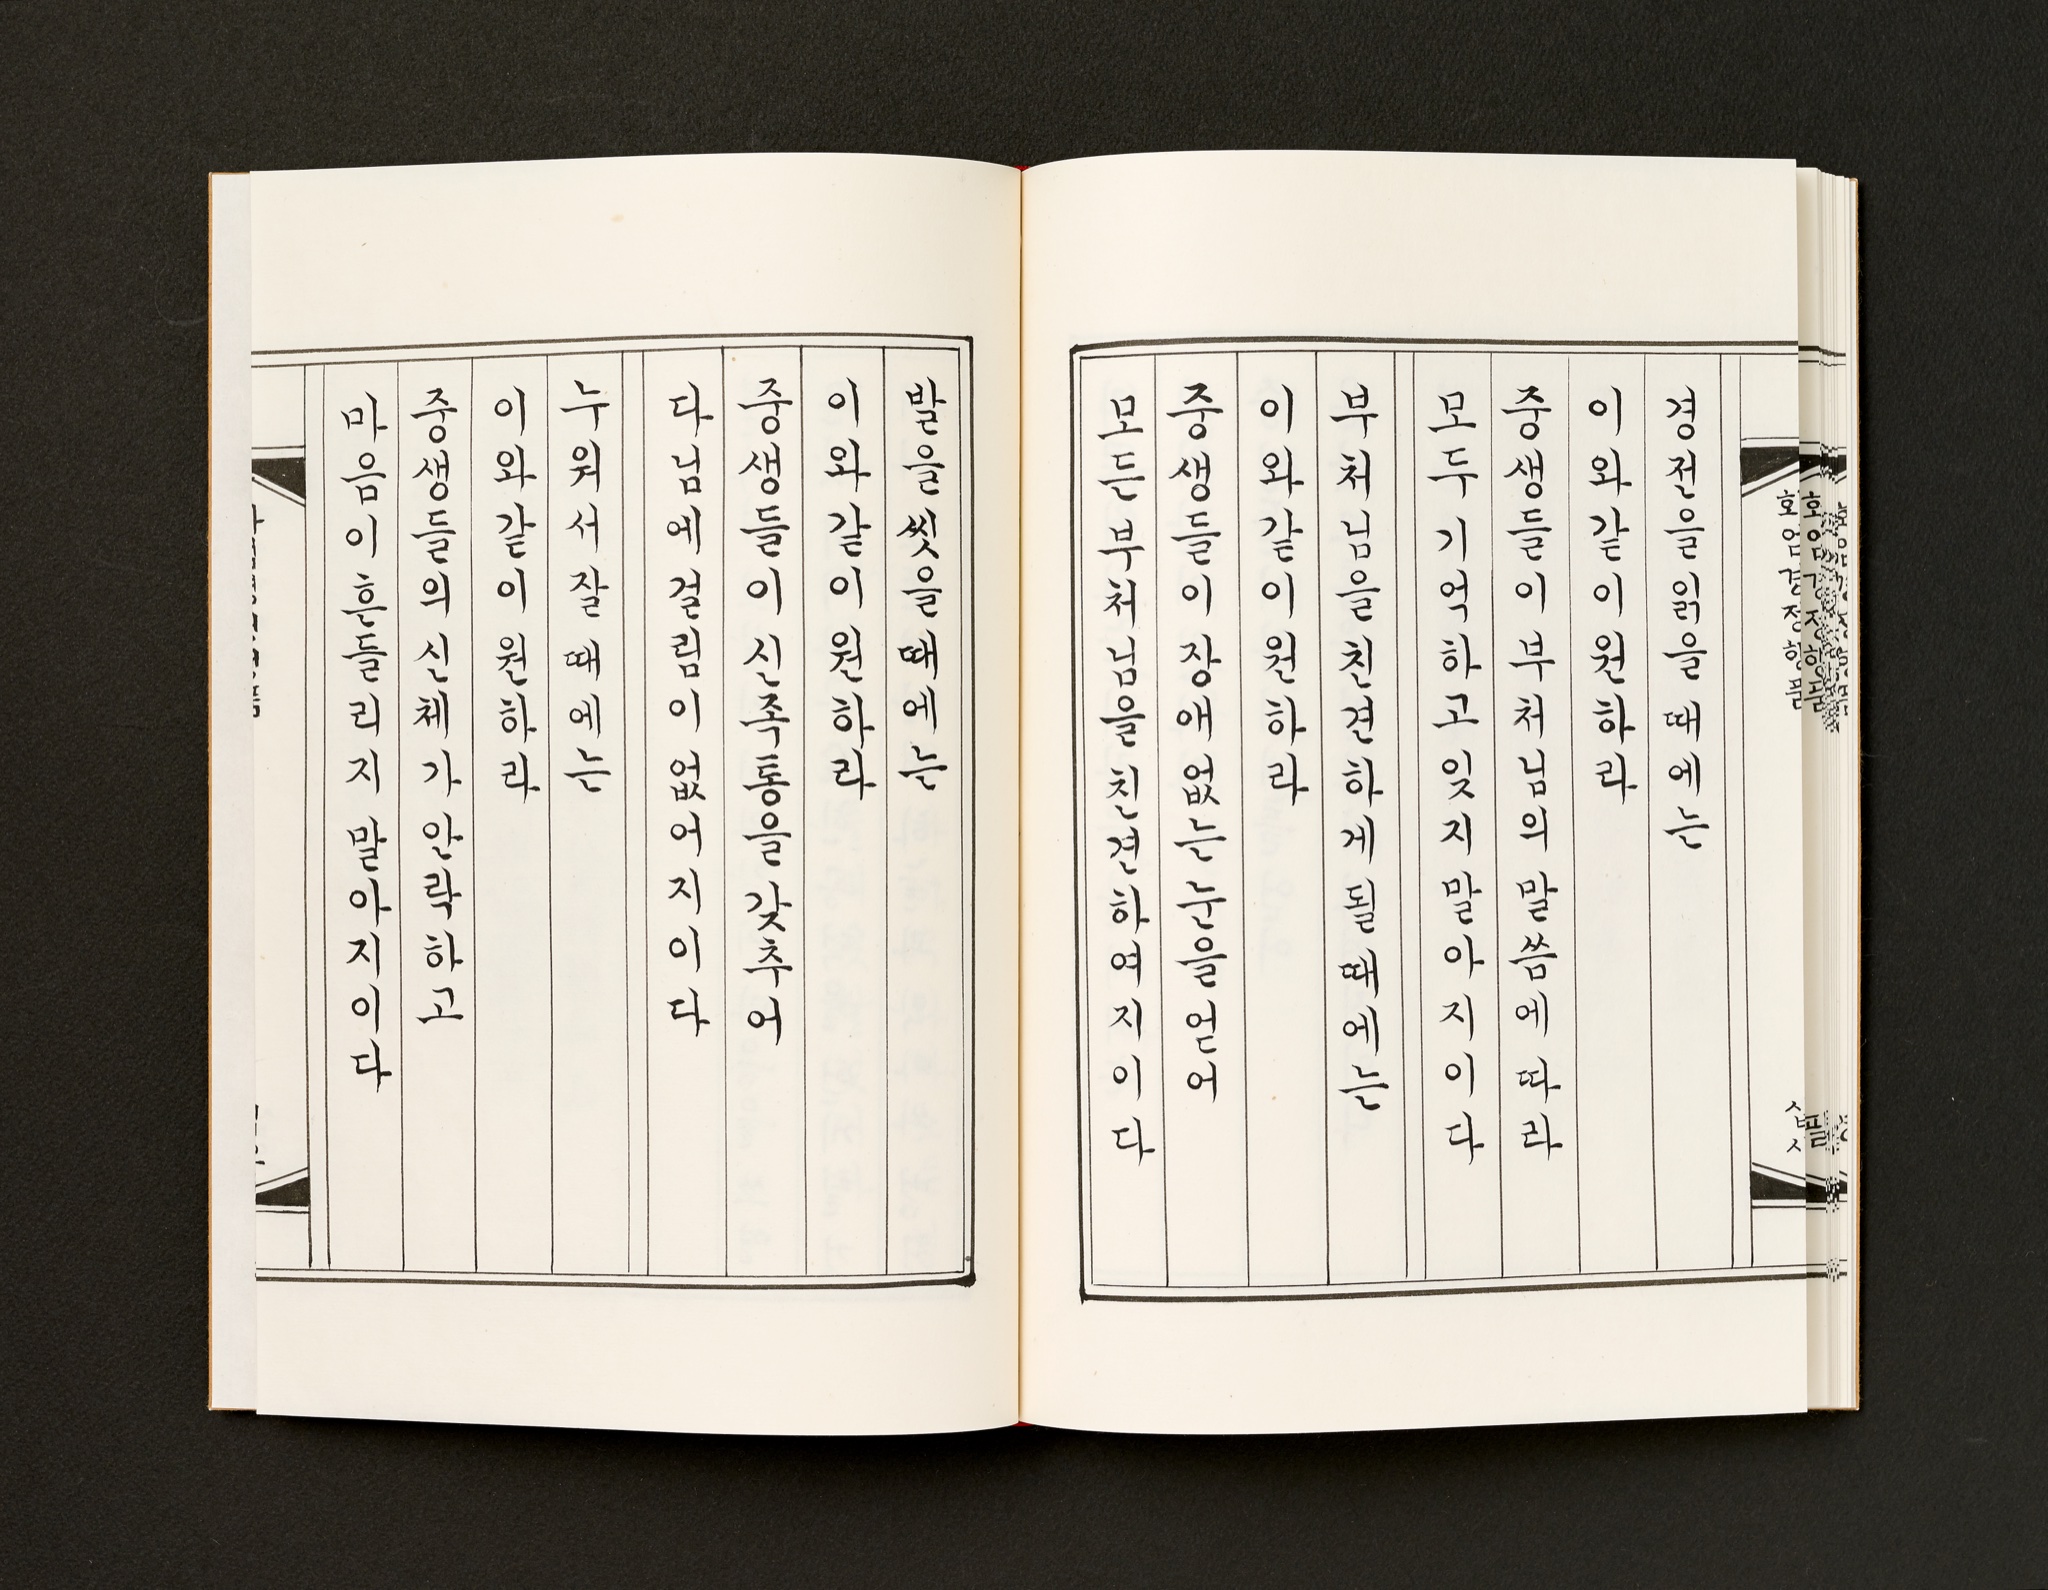 화엄경정행품
경전을읽을때에는
이와같이원하라
중생들이부처님의말씀에따라
모두기억하고잊지말아지이다
부처님을친견하게될때에는
이와같이원하라
중생들이장애없는눈을얻어
모든부처님을친견하여지이다
발을씻을때에는
이와같이원하라
중생들이신족통을갖추어
다님에걸림이없어지이다
누워서잘때에는
이와같이원하라
중생들의신체가안락하고
마음이흔들리지말아지이다